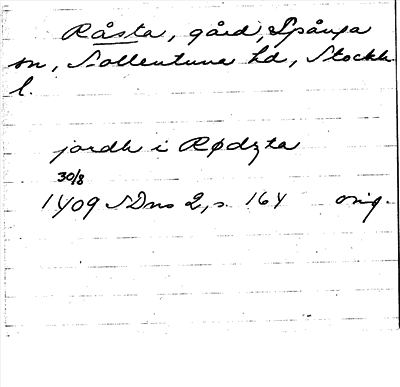 Råsta, gård, Spånga
sn, Sollentuna hd, Stockh
l.
jordh i Rødzta
30/8
1409 SDns 2, s. 164 orig.